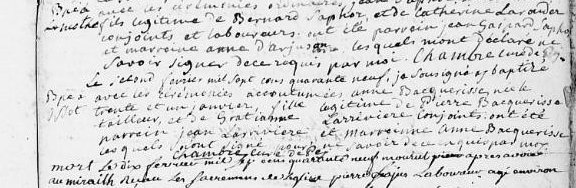 Bpea avec les ceremonies ordinaires, jean Saphor
fils legitime de Bernard Saphor, et de Catherine Larrader
conjoints et laboureurs. ont ete parrein jean Gaspard Saphor
et marreine anne Darjuson lesquels mont declaré ne
savoir signer de ce requis par moi. Chambre curé de
Le second fevrier mil sept cens quarante neuf, je soussigné ay baptizé
Bpea avec les ceremonies accoutumées anne Bacquerisse née le
trente et un janvier, fille legitime de Pierre Bacquerisse
tailleur, et de Gratianne Larriviere conjoints. ont été
parrein jean Larriviere et Marrenne Anne Bacquerisse
lesquels nont signé pour ne savoir de ce requis par moy
Chambre curé de
mort Le dix fevrier mil sept cens quarante neuf mourut apres avoir
au mirailh Receu Les Sacremens de L'Eglise pierre Laboureur agé environ